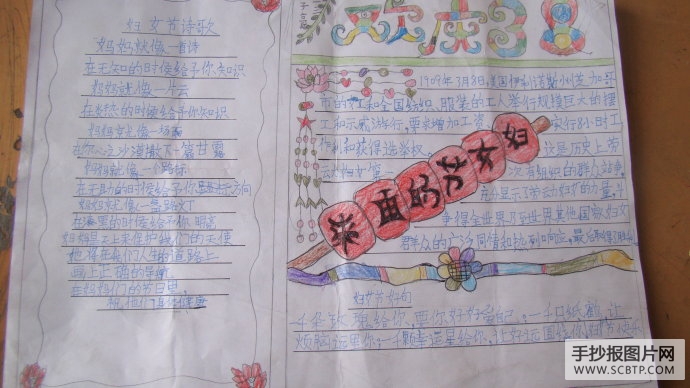 妇女节诗歌
妈妈就像一首诗
在无知的时候给予你知识
妈妈就像一片云
在 的时候给予你知识
妈妈就像一场
在你心上沙漠撒下一篇甘露
妈妈就像一个路标
在无助的时候给予你 方向
妈妈就像一盏路灯
在漆黑的时候给予你明亮
妈妈是天上来保护我们的天使
她将在我们人生的道路上
画上正确的导航
在妈妈们的节日里
祝他们 健康
1909年3月8日,美国伊利诺斯州芝加哥
市的 工和全国纺织、服装的工人举行规模巨大的罢
工和示威游行,要求增加工资 实行8小时工
作制和获得选举权。 这是历史上劳
动妇女第一 次有组织的群众 争,
充分显示了劳动妇女的力量,
争得全世界乃至世界其他国家妇女
群众的广泛同情和热烈响应,最
妇女节的来
妇女节好句
千朵玫瑰给你,要你好好爱自己。 千只纸鹤 让
烦恼远离你。一千颗幸运星给你,让好运围绕你,妇女节快乐
手抄报图片网
WWW.SCBTP.COM